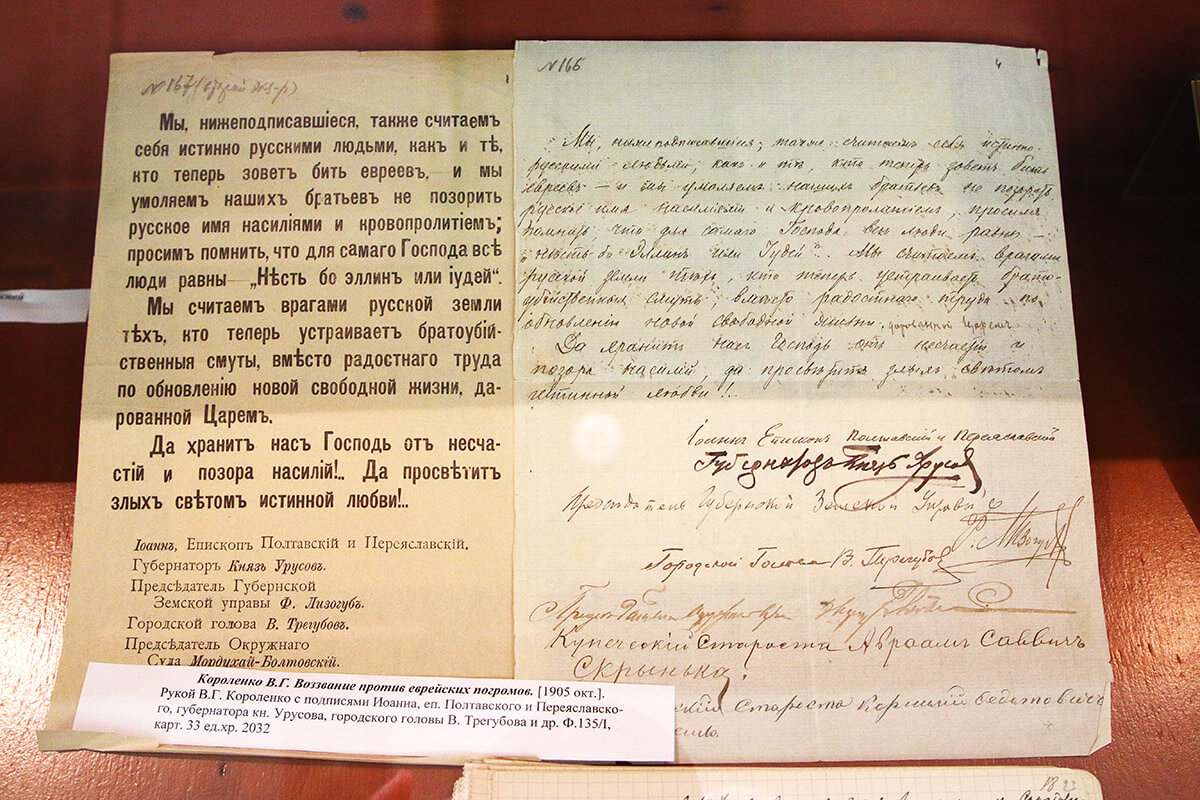 №167
Мы, нижеподписавшіеся, также считаемъ
себя истинно русскими людьми, какъ и тѣ,
кто теперь зоветъ бить евреевъ, и мы
умоляемъ нашихъ братьевъ не позорить
русское имя насиліями и кровопролитіемъ;
просимъ помнить, что для самаго Господа всѣ
люди равны— „Нѣсть бо эллин или іудей“.
Мы считаемъ врагами русской земли
тѣхъ, кто теперь устраиваетъ братоубій-
ственныя смуты, вмѣсто радостнаго труда
по обновленію новой свободной жизни, да-
рованной Царемъ.
Да хранитъ насъ Господь отъ несча-
стій и позора насилій!.. Да просвѣтитъ
злыхъ свѣтомъ истинной любви!..
Іоаннъ, Епископъ Полтавскій и Переяславскій.
Губернаторъ Князь Урусовъ.
Предсѣдатель Губернской
Земской управы Ф. Лизогубъ.
Городской голова В. Трегубовъ.
Предсѣдатель Окружнаго
Суда Мордухай-Болтовскій.
№166
4
Мы, нижеподписавшіеся, также считаемъ себя истинно
русскими людьми, какъ и тѣ, кто теперь зоветъ бить
евреевъ — и мы умоляемъ нашихъ братьевъ не позорить
русское имя насиліями и кровопролитіемъ, просимъ
помнить, что для самаго Господа всѣ люди равны —
„нѣсть бо Эллинъ или Іудей“. Мы считаемъ врагами
русской земли тѣхъ, кто теперь устраиваетъ брато-
убійственныя смуты, вмѣсто радостнаго труда по
обновленію новой свободной жизни, дарованной Царемъ
Да хранитъ насъ Господь отъ несчастій и
позора насилій, да просвѣтитъ злыхъ свѣтомъ
истинной любви!
Іоаннъ Епископъ Полтавскій и Переяславскій
Губернаторъ Князь Урусовъ
Предсѣдатель Губернской Земской Управы
Ф. Лизогубъ
Городской Голова В. Трегубовъ
Купеческій Староста Авраамъ Саввичъ
Скрынька.
Староста
Короленко В.Г. Воззвание против еврейских погромов. [1905 окт.].
Рукой В.Г. Короленко с подписями Иоанна, еп. Полтавского и Переяславско-
го, губернатора кн. Урусова, городского головы В. Трегубова и др. Ф.135/I,
карт. 33 ед.хр. 2032
18 23